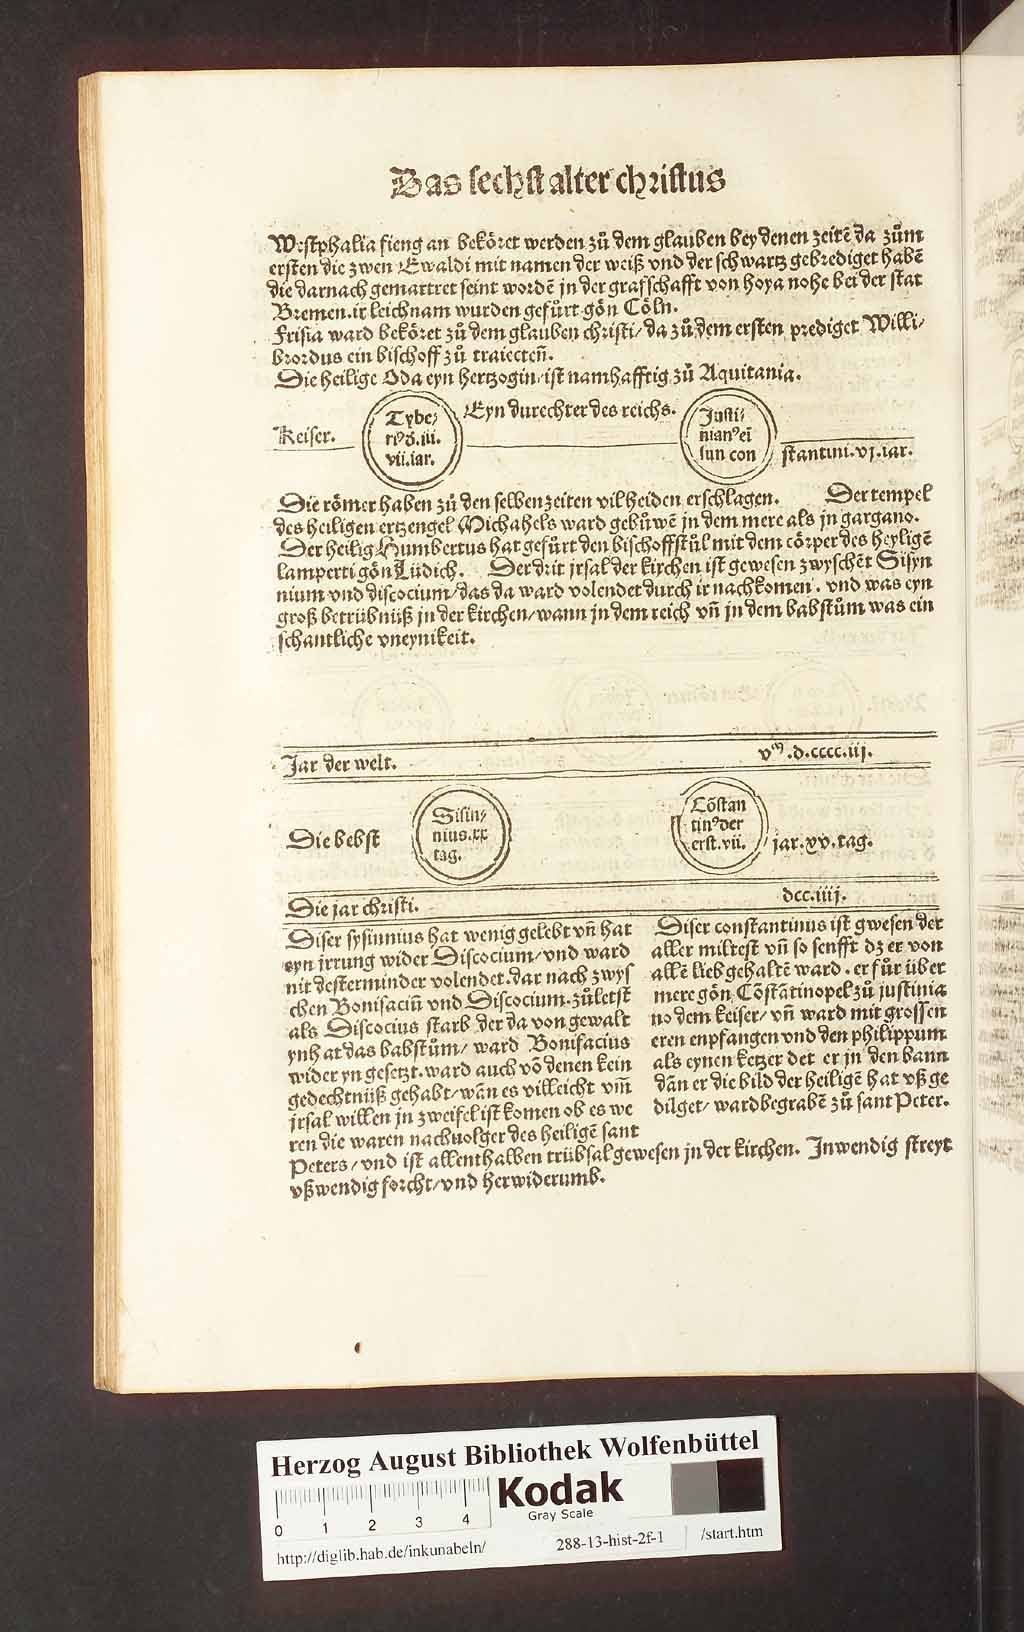 Das sechst alter christus
Westphalia fieng an beköret werden zů dem glauben bey denen zeitē da zům
ersten die zwen Ewaldi mit namen der weiß vnd der schwartz gebrediget habē
die darnach gemartret seint wordē jn der grafschafft von hoya nohe bei der stat
Bremen. ir leichnam wurden gefůrt gön Cöln.
Frisia ward beköret zů dem glauben christi/ da zů dem ersten prediget Willi/
brordus ein bischoff zů traiecten̄.
Die heilige Oda eyn hertzogin/ ist namhafftig zů Aquitania.
Keiser.
Tybe/
riꝰ ð. iii.
vii. iar.
Eyn durechter des reichs.
Justi/
nianꝰ eī
sun con
stantini. vj. iar.
Die römer haben zů den selben zeiten vil heiden erschlagen. Der tempel
des heiligen ertzengel Michahels ward gebůwē jn dem mere als jn gargano.
Der heilig Humbertus hat gefůrt den bischoffstůl mit dem cörper des heyligē
lamperti gön Lüdich. Der drit jrsal der kirchen ist gewesen zwyschēt Sisyn
nium vnd discocium/ das da ward volendet durch ir nachkomen. vnd was eyn
groß betrübnüß jn der kirchen/ wann jn dem reich vn̄ jn dem babstům was ein
schantliche vneynikeit.
Jar der welt.
vᵐ. d. cccc. iij.
Die bebst
Sisin/
nius. xx
tag.
Cōstan
tinꝰ der
erst. vii.
jar. xv. tag.
Die jar christi.
dcc. iiij.
Diser sysinnius hat wenig gelebt vn̄ hat
eyn jrrung wider Discocium/ vnd ward
nit desterminder volendet. dar nach zwys
chen Bonifaciū vnd Discocium. zůletst
als Discocius starb der da von gewalt
ynhat das babstům/ ward Bonifacius
wider yn gesetzt. ward auch vō denen kein
gedechtnüß gehabt/ wān es villeicht vm̄
jrsal willen jn zweifel ist komen ob es we
ren die waren nachuolger des heiligē sant
Peters/ vnd ist allenthalben trübsal gewesen jn der kirchen. Jnwendig streyt
vßwendig forcht/ vnd herwiderumb.
Diser constantinus ist gwesen der
aller miltest vn̄ so senfft dz er von
allē lieb gehaltē ward. er fůr über
mere gön Cōstātinopel zů justinia
no dem keiser/ vn̄ ward mit grossen
eren enpfangen vnd den philippum
als eynen ketzer det er jn den bann
dān er die bild der heiligē hat vß ge
dilget/ ward begrabē zů sant Peter.
Herzog August Bibliothek Wolfenbüttel
Kodak
Gray Scale
0 1 2 3 4
http://diglib.hab.de/inkunabeln/
288-13-hist-2f-1
/start.htm